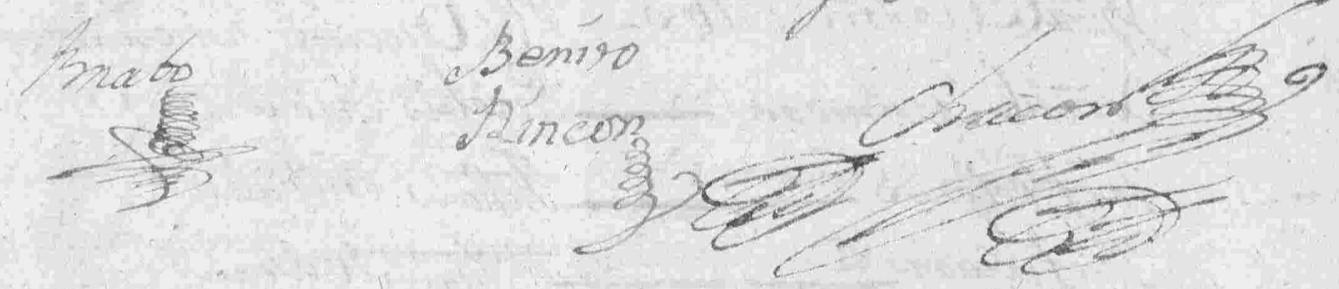 Brabo
Benito
Rincon
Chacon